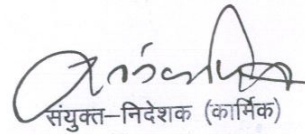 संयुक्त–निदेशक (कार्मिक)